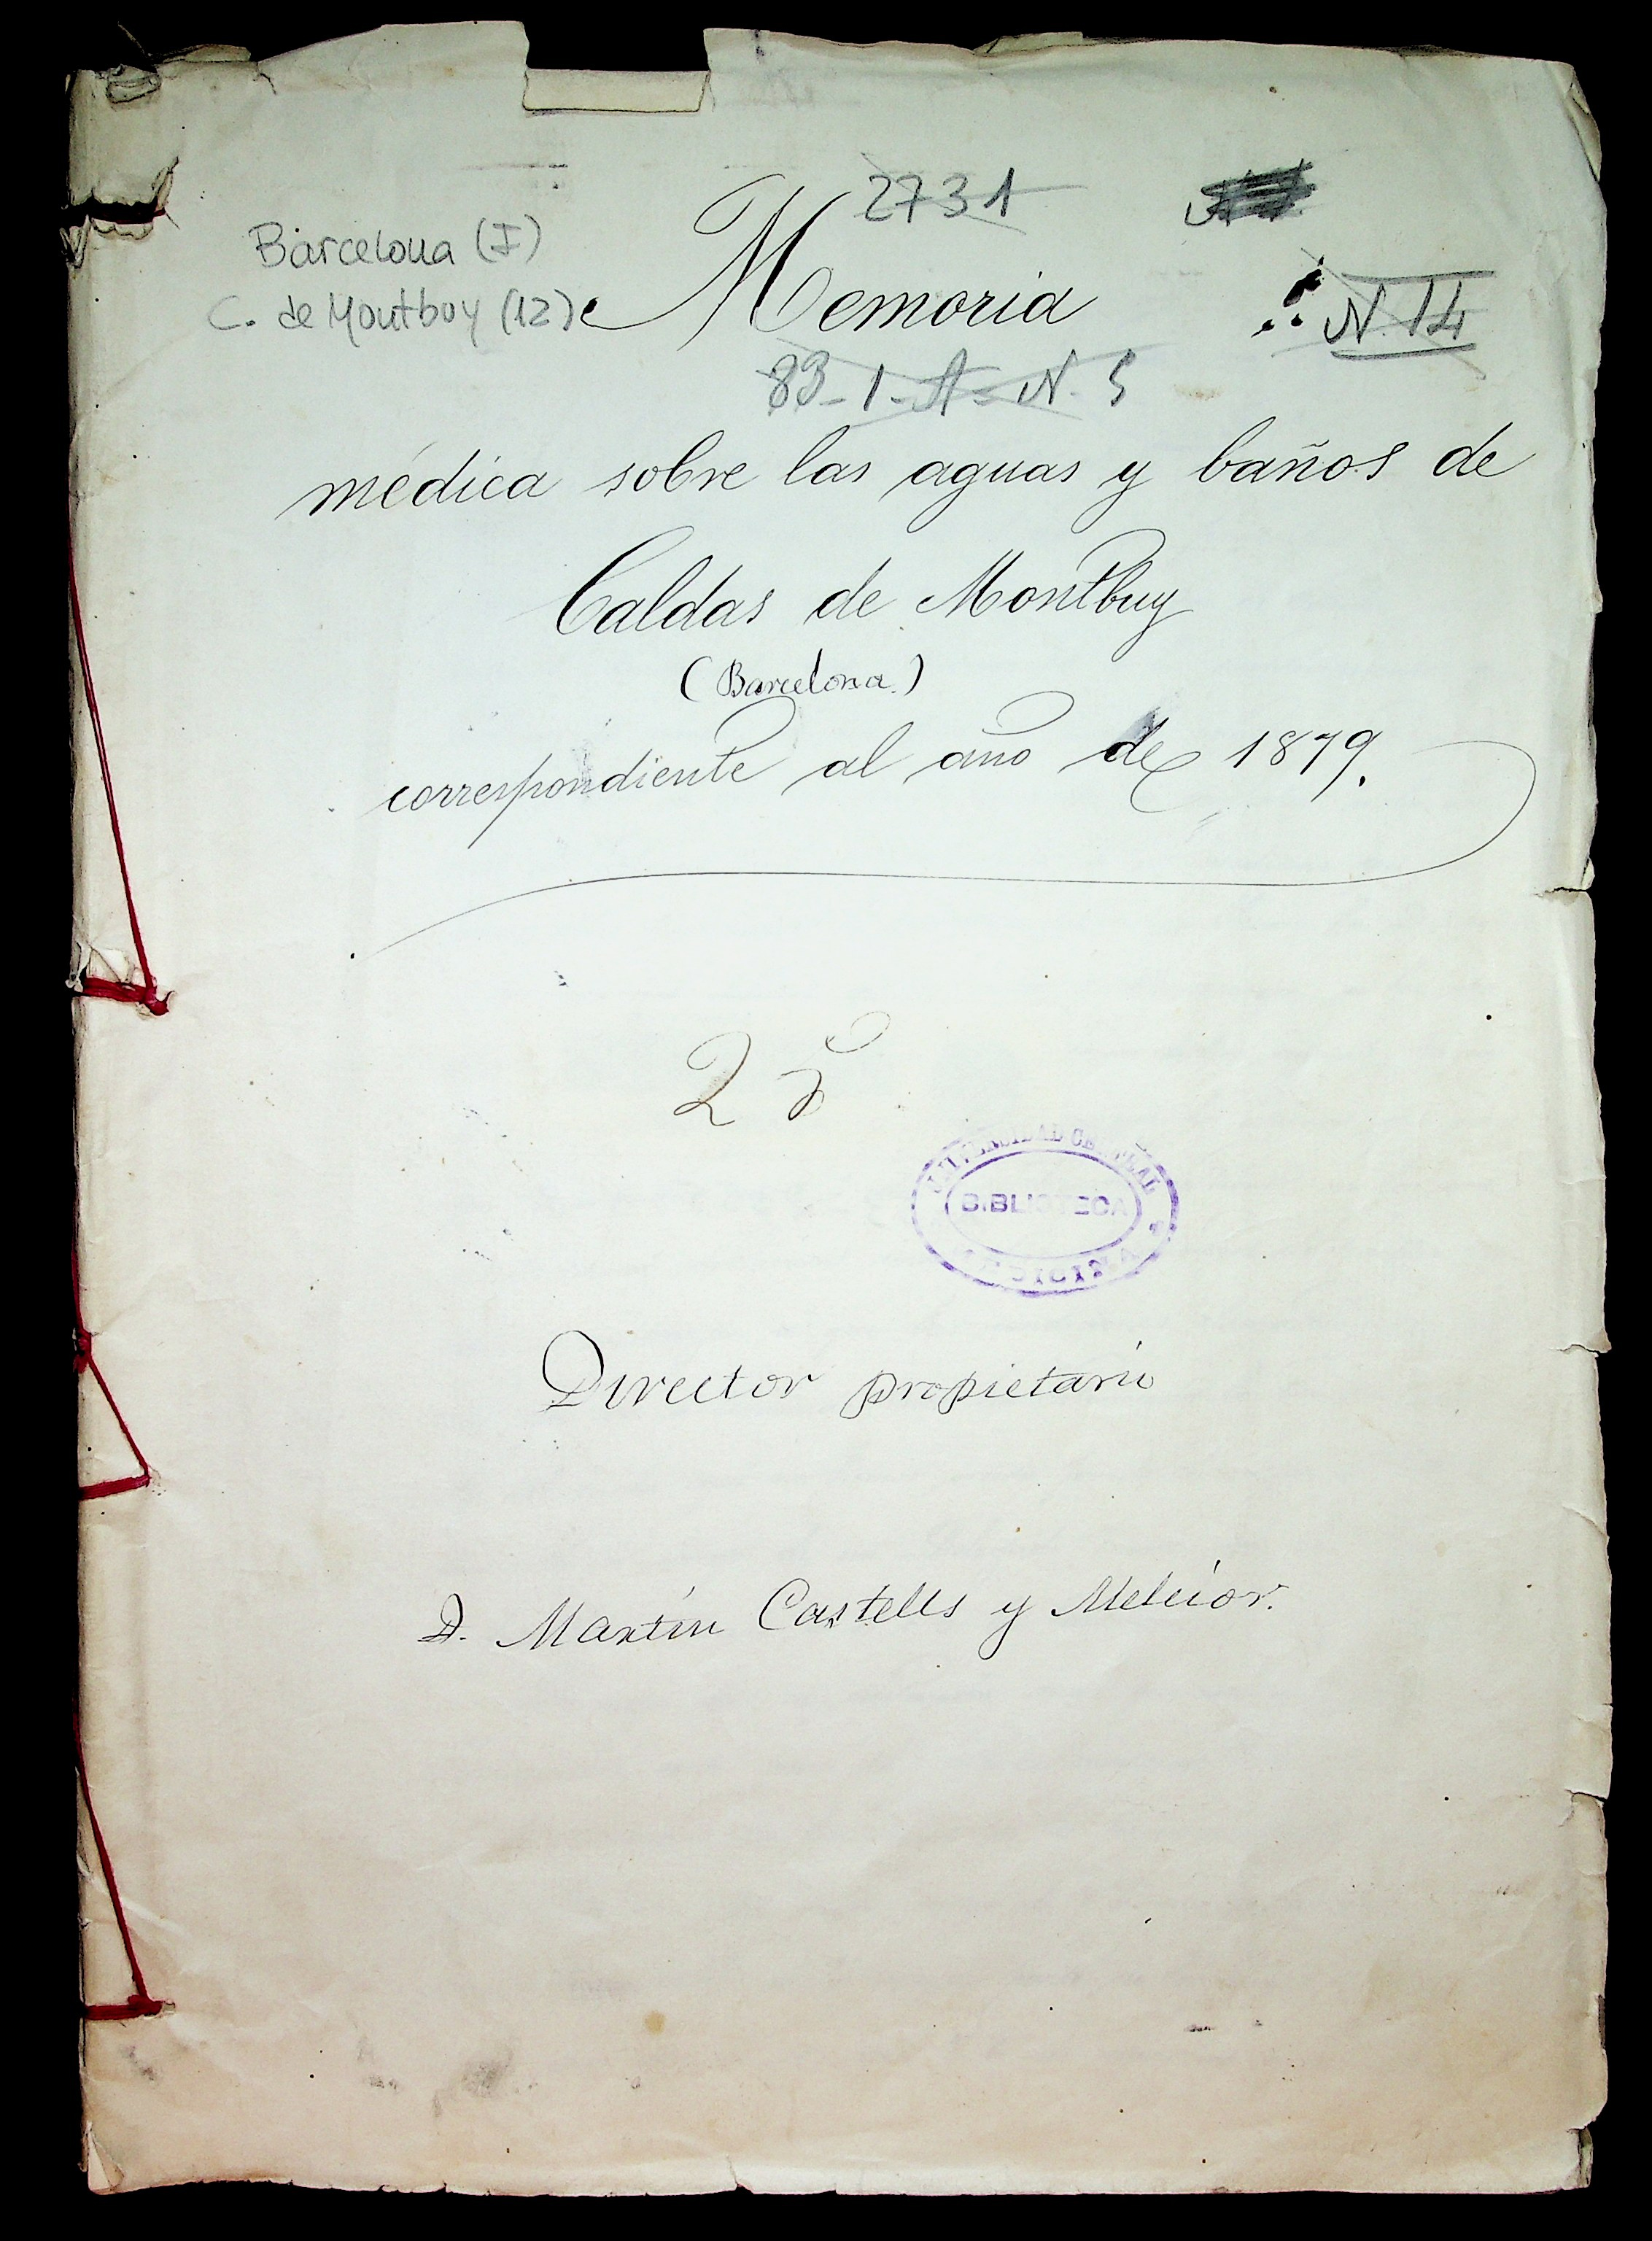 2731
Barcelona (I)
C. de Montbuy (12)
Memoria
N. 14
83-1-A-N. 5
médica sobre las aguas y baños de
Caldas de Montbuy
(Barcelona.)
correspondiente al año de 1879.
UNIVERSIDAD CENTRAL
BIBLIOTECA
MEDICINA
Director propietario
D. Martin Castells y Melcior.